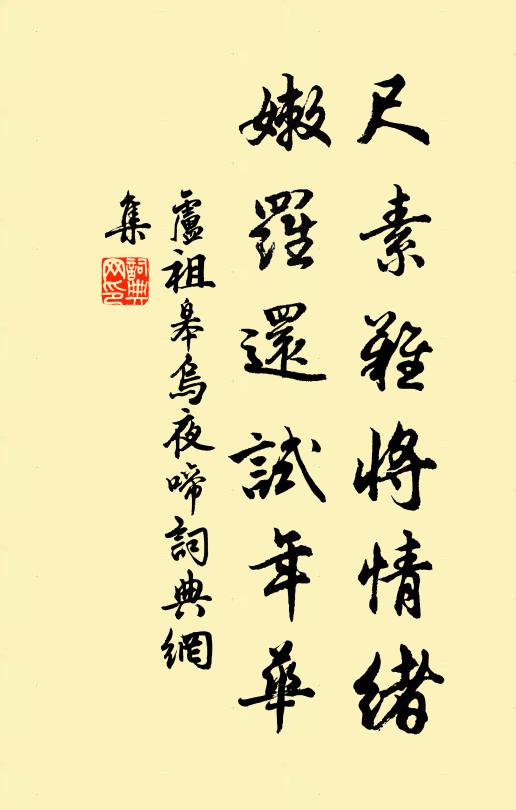 尺素難將情緒
嫩羅還試年華
盧祖皋烏夜啼詞典網
集
詞典網印